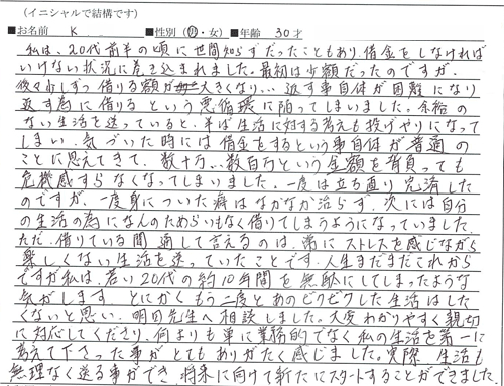 (イニシャルで結構です)
■お名前 K. ■性別 (男・女) ■年齢 30才
私は、20代前半の頃に世間知らずだったこともあり、借金をしなければ
いけない状況に巻き込まれました。最初は少額だったのですが、
後々少しずつ借りる額が大きくなり… 返す事自体が困難になり
返す為に借りるという悪循環に陥ってしまいました。余裕の
ない生活を送っていると、半ば生活に対する考えも投げやりになって
しまい、気づいた時には借金をするという事自体が普通の
ことに思えてきて、数十万、数百万という金額を背負っても
危機感すらなくなってしまいました。一度は立ち直り完済した
のですが、一度身についた病はなかなか治らず、次には自分
の生活の為になんのためらいもなく借りてしまうようになっていました。
ただ、借りている間通して言えるのは、常にストレスを感じながら
楽しくない生活を送っていたことです。人生まだまだこれから
ですが私は、若い20代の約10年間を無駄にしてしまったような
気がします。とにかくもう二度とあのビクビクした生活はした
くないと思い、明円先生へ相談しました。大変わかりやすく親切
に対応してくださり、何よりも単に業務的でなく私の生活を第一に
考えて下さった事がとてもありがたく感じました。実際、生活も
無理なく送る事ができ、将来に向けて新たにスタートすることができました。